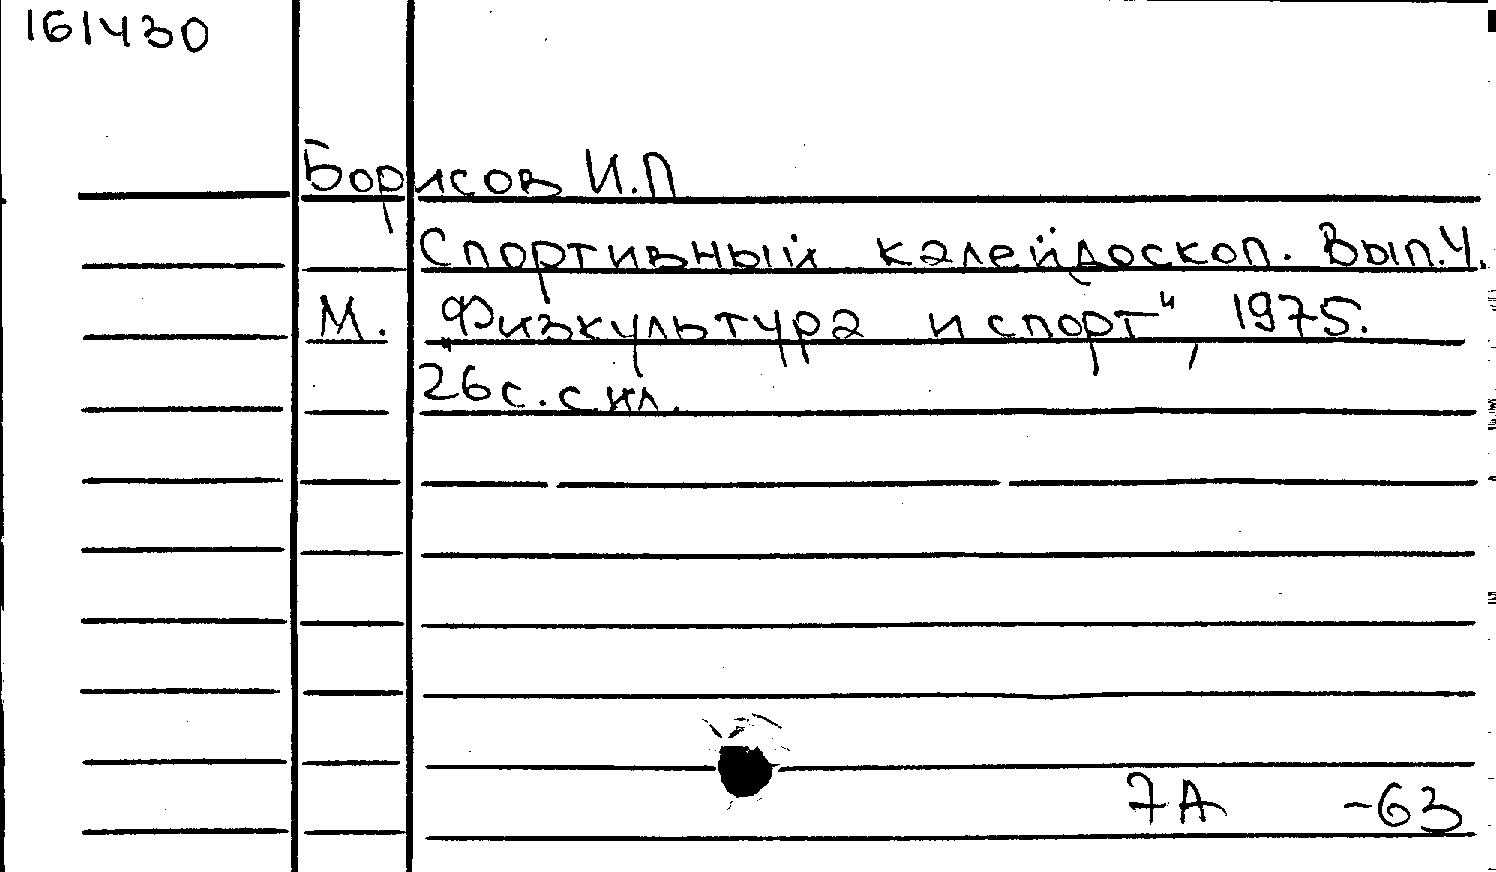 161430
Борисов И.П
Спортивный калейдоскоп. Вып.4.
М. „Физкультура и спорт", 1975.
26с. с ил.
7А -63